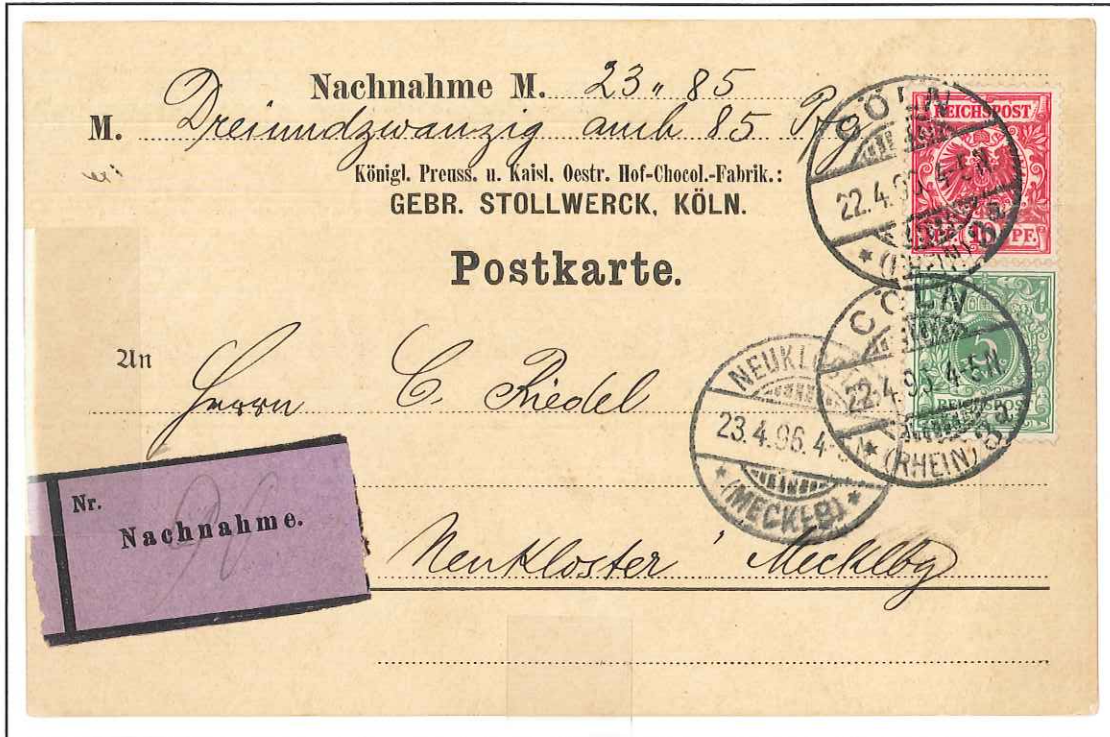 Nachnahme M. 23 " 85
M. Dreiundzwanzig auch 85 Pfg
Königl. Preuss. u. Kaisl. Oestr. Hof-Chocol.-Fabrik.:
GEBR. STOLLWERCK, KÖLN.
Postkarte.
An Herrn C. Riedel
Neukloster Mecklbg
Nr.
Nachnahme.
REICHSPOST
10 PF.
CÖLN
22.4.96 4-5N.
(RHEIN) 3a
5
REICHSPOST
CÖLN
22.4.96 4-5N.
* (RHEIN) 3a
NEUKLOSTER
23.4.96. 4
* (MECKLB) *